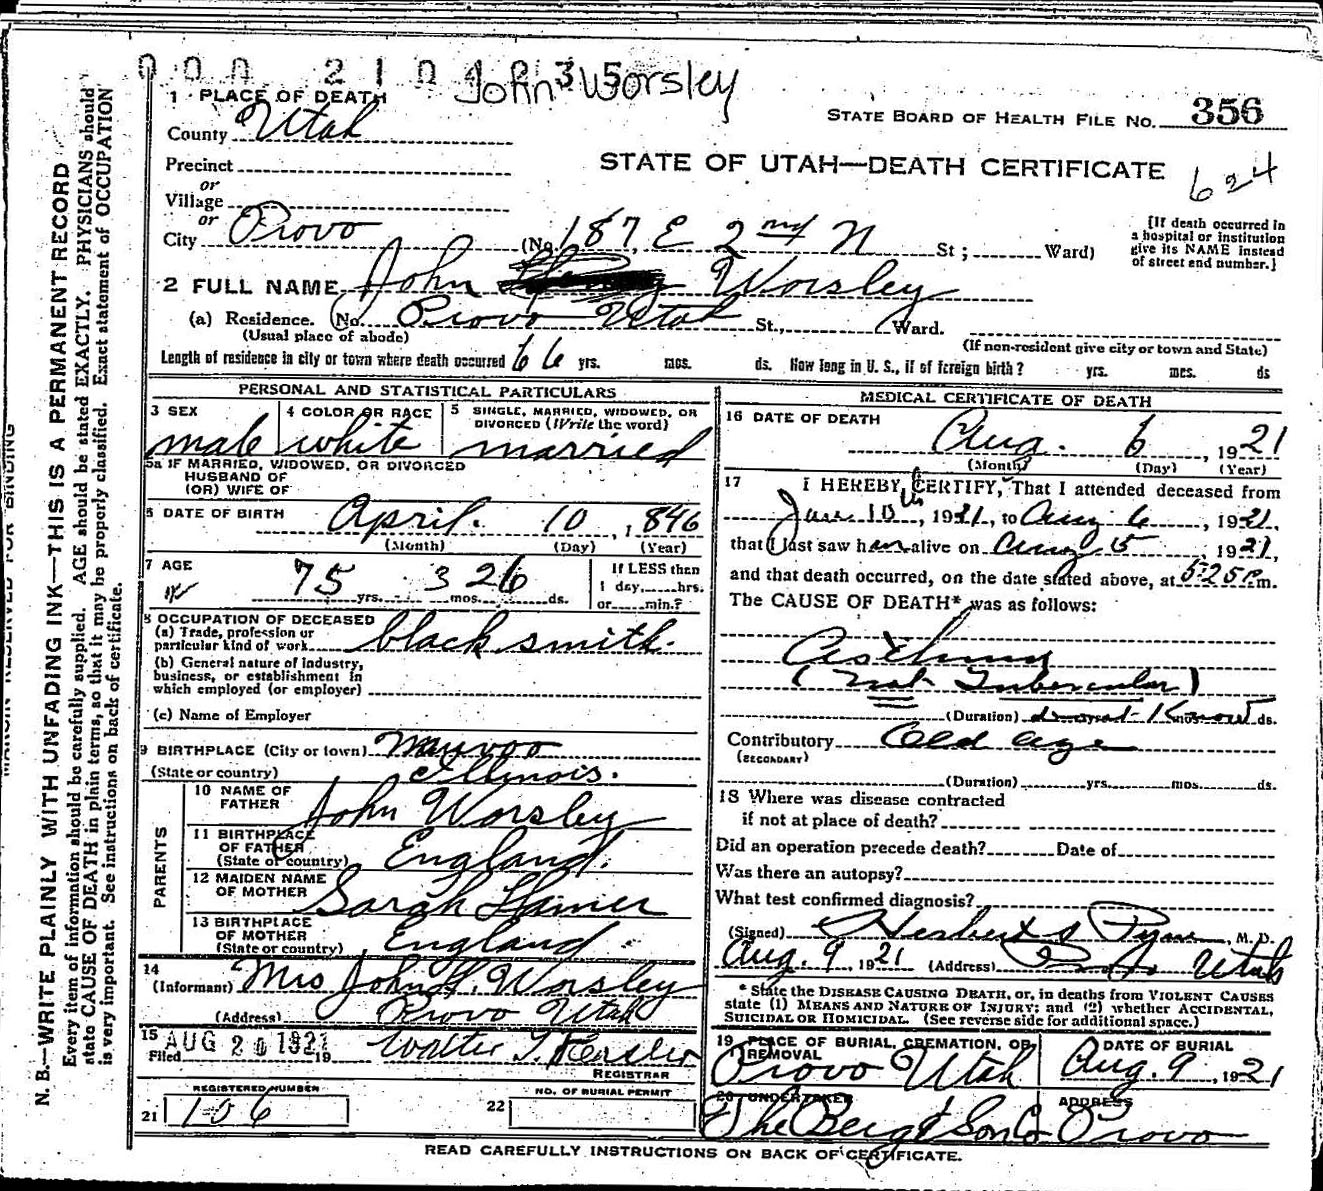 000 210 4235
John Worsley
1 PLACE OF DEATH
County Utah
STATE BOARD OF HEALTH FILE NO. 356
Precinct
STATE OF UTAH—DEATH CERTIFICATE
624
or
Village
or
City Provo (No. 187 E 2nd N St; Ward)
[If death occurred in
a hospital or institution
give its NAME instead
of street end number.]
2 FULL NAME John Worsley
(a) Residence. (No. Provo Utah St., Ward.
(Usual place of abode)
(If non-resident give city or town and State)
Length of residence in city or town where death occurred 66 yrs. mos. ds. How long in U. S., if of foreign birth? yrs. mos. ds
PERSONAL AND STATISTICAL PARTICULARS
3 SEX
male
4 COLOR OR RACE
white
5 SINGLE, MARRIED, WIDOWED, OR
DIVORCED (Write the word)
married
5a IF MARRIED, WIDOWED, OR DIVORCED
HUSBAND OF
(OR) WIFE OF
6 DATE OF BIRTH April 10, 1846
(Month) (Day) (Year)
7 AGE
75 yrs. 3 mos. 26 ds.
If LESS then
1 day, hrs.
or min.?
8 OCCUPATION OF DECEASED
(a) Trade, profession or
particular kind of work blacksmith.
(b) General nature of industry,
business, or establishment in
which employed (or employer)
(c) Name of Employer
9 BIRTHPLACE (City or town) Nauvoo
(State or country) Illinois.
PARENTS
10 NAME OF
FATHER John Worsley
11 BIRTHPLACE
OF FATHER
(State or country) England.
12 MAIDEN NAME
OF MOTHER Sarah Hamer
13 BIRTHPLACE
OF MOTHER
(State or country) England.
14
(Informant) Mrs John H. Worsley
(Address) Provo Utah
15
Filed AUG 20 1921 19 Walter T.
REGISTRAR
REGISTERED NUMBER
21 106
NO. OF BURIAL PERMIT
22
MEDICAL CERTIFICATE OF DEATH
16 DATE OF DEATH
Aug. 6, 1921
(Month) (Day) (Year)
17 I HEREBY CERTIFY, That I attended deceased from
10th, 1921, to Aug 6, 1921,
that I last saw him alive on Aug 5, 1921,
and that death occurred, on the date stated above, at 5:25 P.m.
The CAUSE OF DEATH* was as follows:
Asthma
(not Tubercular)
(Duration) do not Know ds.
Contributory Old age
(SECONDARY)
(Duration) yrs. mos. ds.
18 Where was disease contracted
if not at place of death?
Did an operation precede death? Date of
Was there an autopsy?
What test confirmed diagnosis?
(Signed) Herbert S Pyne, M. D.
Aug. 9, 1921 (Address) Provo Utah
* State the DISEASE CAUSING DEATH, or, in deaths from VIOLENT CAUSES
state (1) MEANS AND NATURE OF INJURY; and (2) whether ACCIDENTAL,
SUICIDAL OR HOMICIDAL. (See reverse side for additional space.)
19 PLACE OF BURIAL, CREMATION, OR
REMOVAL
Provo Utah
DATE OF BURIAL
Aug. 9, 1921
20 UNDERTAKER
The Berg & Son Co
ADDRESS
Provo
READ CAREFULLY INSTRUCTIONS ON BACK OF CERTIFICATE.
MARGIN RESERVED FOR BINDING
N. B.—WRITE PLAINLY WITH UNFADING INK—THIS IS A PERMANENT RECORD
Every item of information should be carefully supplied. AGE should be stated EXACTLY. PHYSICIANS should
state CAUSE OF DEATH in plain terms, so that it may be properly classified. Exact statement of OCCUPATION
is very important. See instructions on back of certificate.